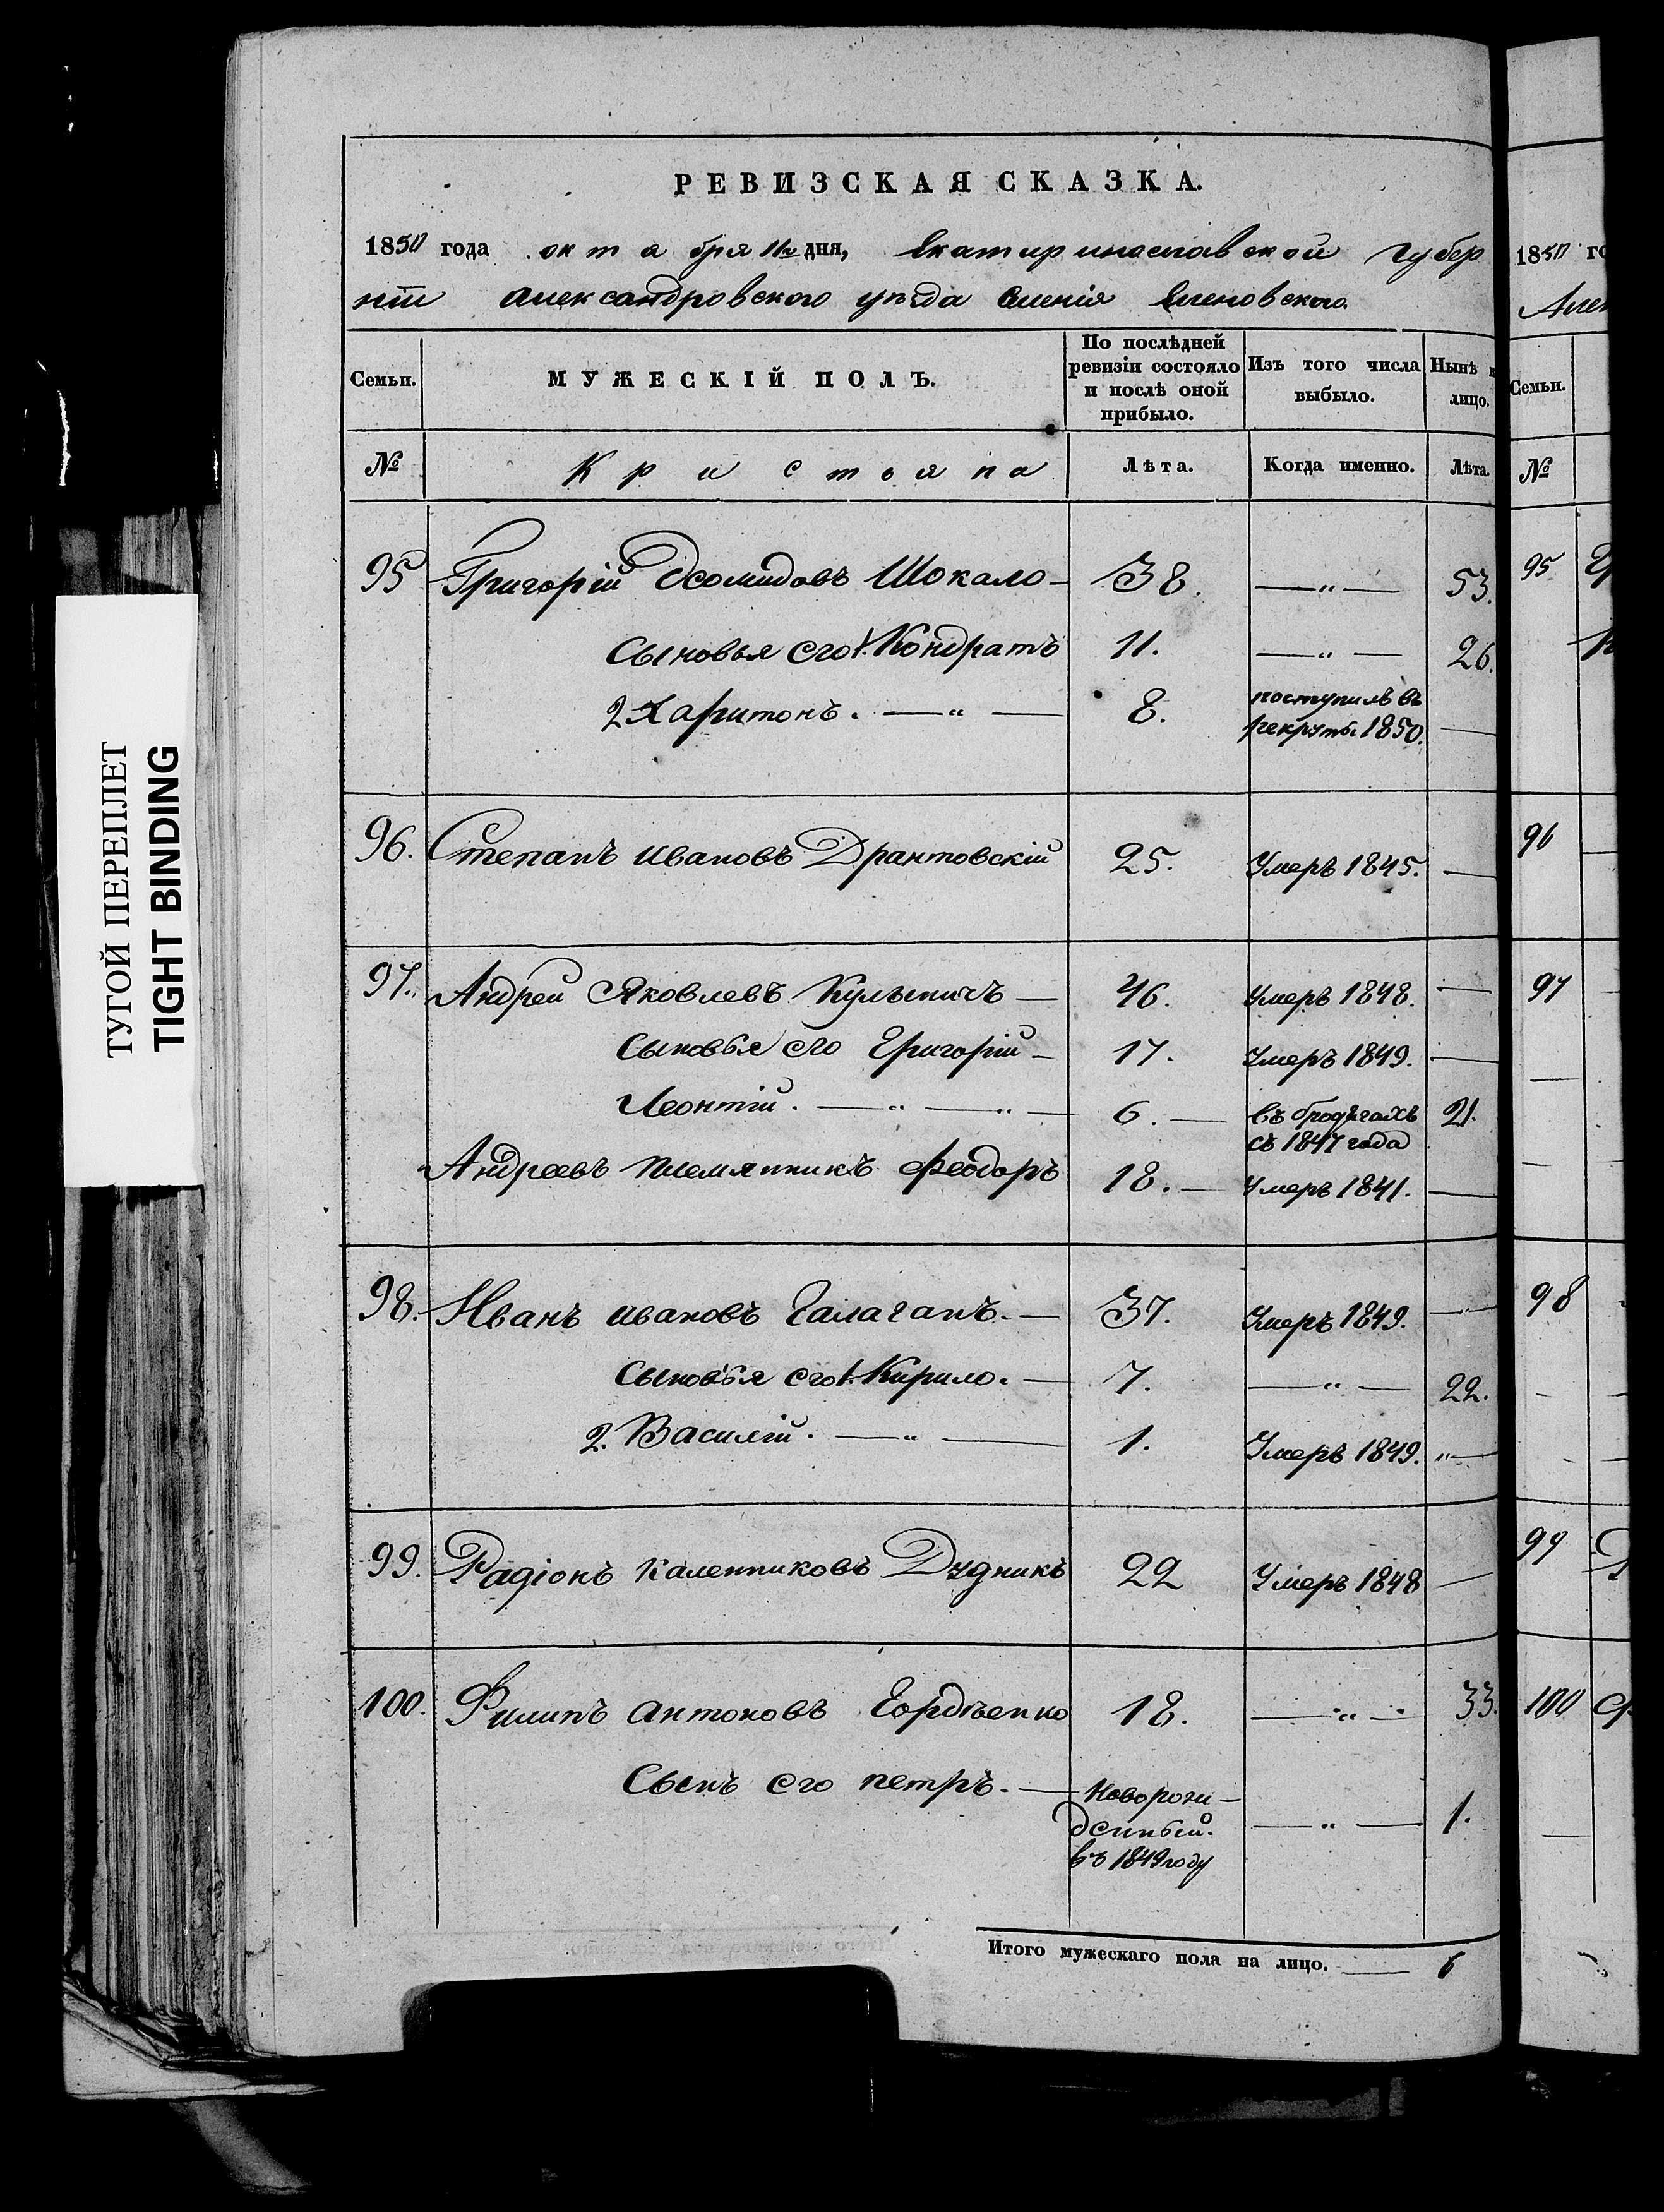 РЕВИЗСКАЯ СКАЗКА.
1850 года октабря 11го дня, Екатиринославской губер
нiи Александровского уѣзда Еленовского
Семьи.
МУЖЕСКІЙ ПОЛЪ.
По послѣдней ревизіи состояло и послѣ оной прибыло.
Изъ того числа выбыло.
Нынѣ
лицо.
№
Кристьяна
Лѣта.
Когда именно.
Лѣта.
95 Григорій Шокало — 38. —„— 53.
Сыновья его 1. Кондратъ 11. —„— 26.
2 Харитонъ. —„— 8. поступилъ въ
рекруты 1850. —
96. Степанъ Ивановъ Драктовскій 25. Умеръ 1845. —
97. Андрей Яковлевъ — 46. Умеръ 1848. —
Сыновья его Григорій — 17. Умеръ 1849. —
Леонтій. —„—„— 6. — въ бродягахъ 21.
съ 1847 года
Андреевъ племянникъ Феодоръ 18. — Умеръ 1841. —
98. Иванъ Ивановъ Галаганъ. — 37. Умеръ 1849. —
Сыновья его 1. Кирило. — 7. —„— 22.
2. Василій. —„— 1. Умеръ 1849. „—
99. Радіонъ Каленниковъ Дудникъ 22 Умеръ 1848 —
100. Филипъ Антоновъ Горбѣенко 18. —„— 33.
Сынъ его Петръ. — Новорож-
денный.
въ 1849 году —„— 1.
Итого мужескаго пола на лицо. — 6
1850 го
Алек
Семьи.
№
95
96
97
98
99
100
ТУГОЙ ПЕРЕПЛЕТ
TIGHT BINDING